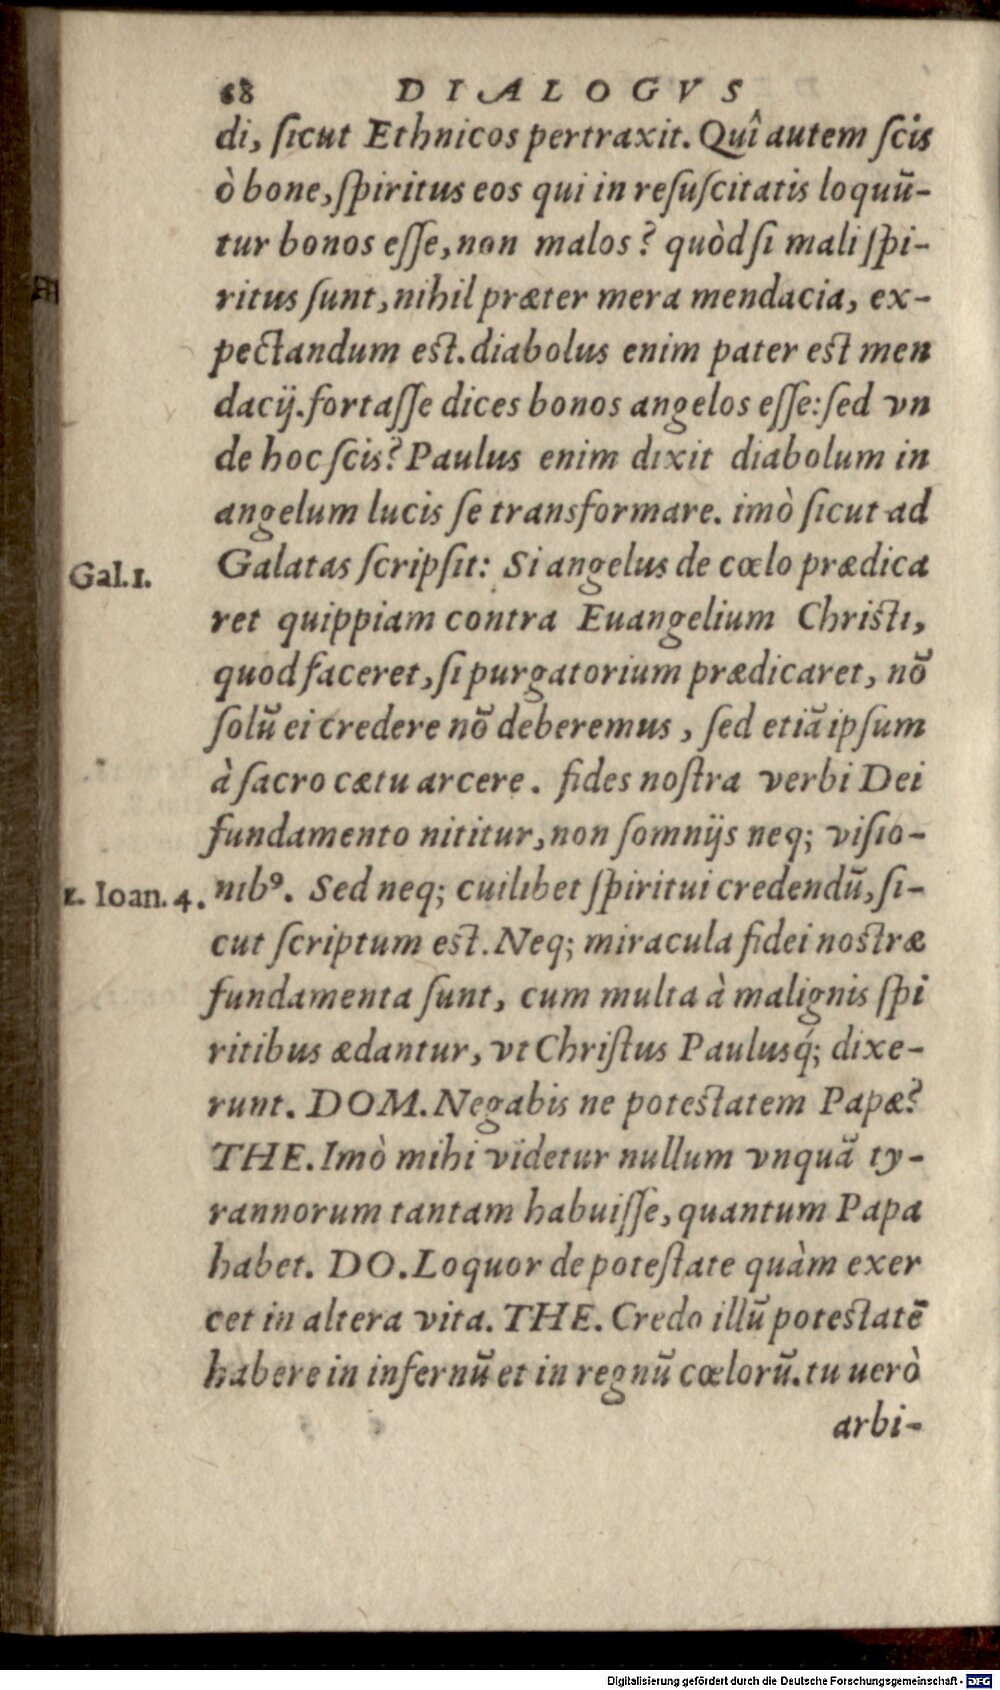 68 DIALOGVS
di, ſicut Ethnicos pertraxit. Quî autem ſcis
ò bone, ſpiritus eos qui in reſuſcitatis loquū-
tur bonos eſſe, non malos? quòd ſi mali ſpi-
ritus ſunt, nihil præter mera mendacia, ex-
pectandum eſt. diabolus enim pater eſt men
dacij. fortaſſe dices bonos angelos eſſe: ſed vn
de hoc ſcis? Paulus enim dixit diabolum in
angelum lucis ſe transformare. imò ſicut ad
Gal. 1. Galatas ſcripſit: Si angelus de cœlo prædica
ret quippiam contra Euangelium Chriſti,
quod faceret, ſi purgatorium prædicaret, nō
ſolū ei credere nō deberemus, ſed etiā ipſum
à ſacro cætu arcere. fides noſtra verbi Dei
fundamento nititur, non ſomnijs neq; viſio-
1. Ioan. 4. nibꝰ. Sed neq; cuilibet ſpiritui credendū, ſi-
cut ſcriptum eſt. Neq; miracula fidei noſtræ
fundamenta ſunt, cum multa à malignis ſpi
ritibus ædantur, vt Chriſtus Paulusq́; dixe-
runt. DOM. Negabis ne poteſtatem Papæ?
THE. Imò mihi videtur nullum vnquā ty-
rannorum tantam habuiſſe, quantum Papa
habet. DO. Loquor de poteſtate quàm exer
cet in altera vita. THE. Credo illū poteſtatē
habere in infernū et in regnū cœlorū. tu uerò
arbi-
Digitalisierung gefördert durch die Deutsche Forschungsgemeinschaft - DFG